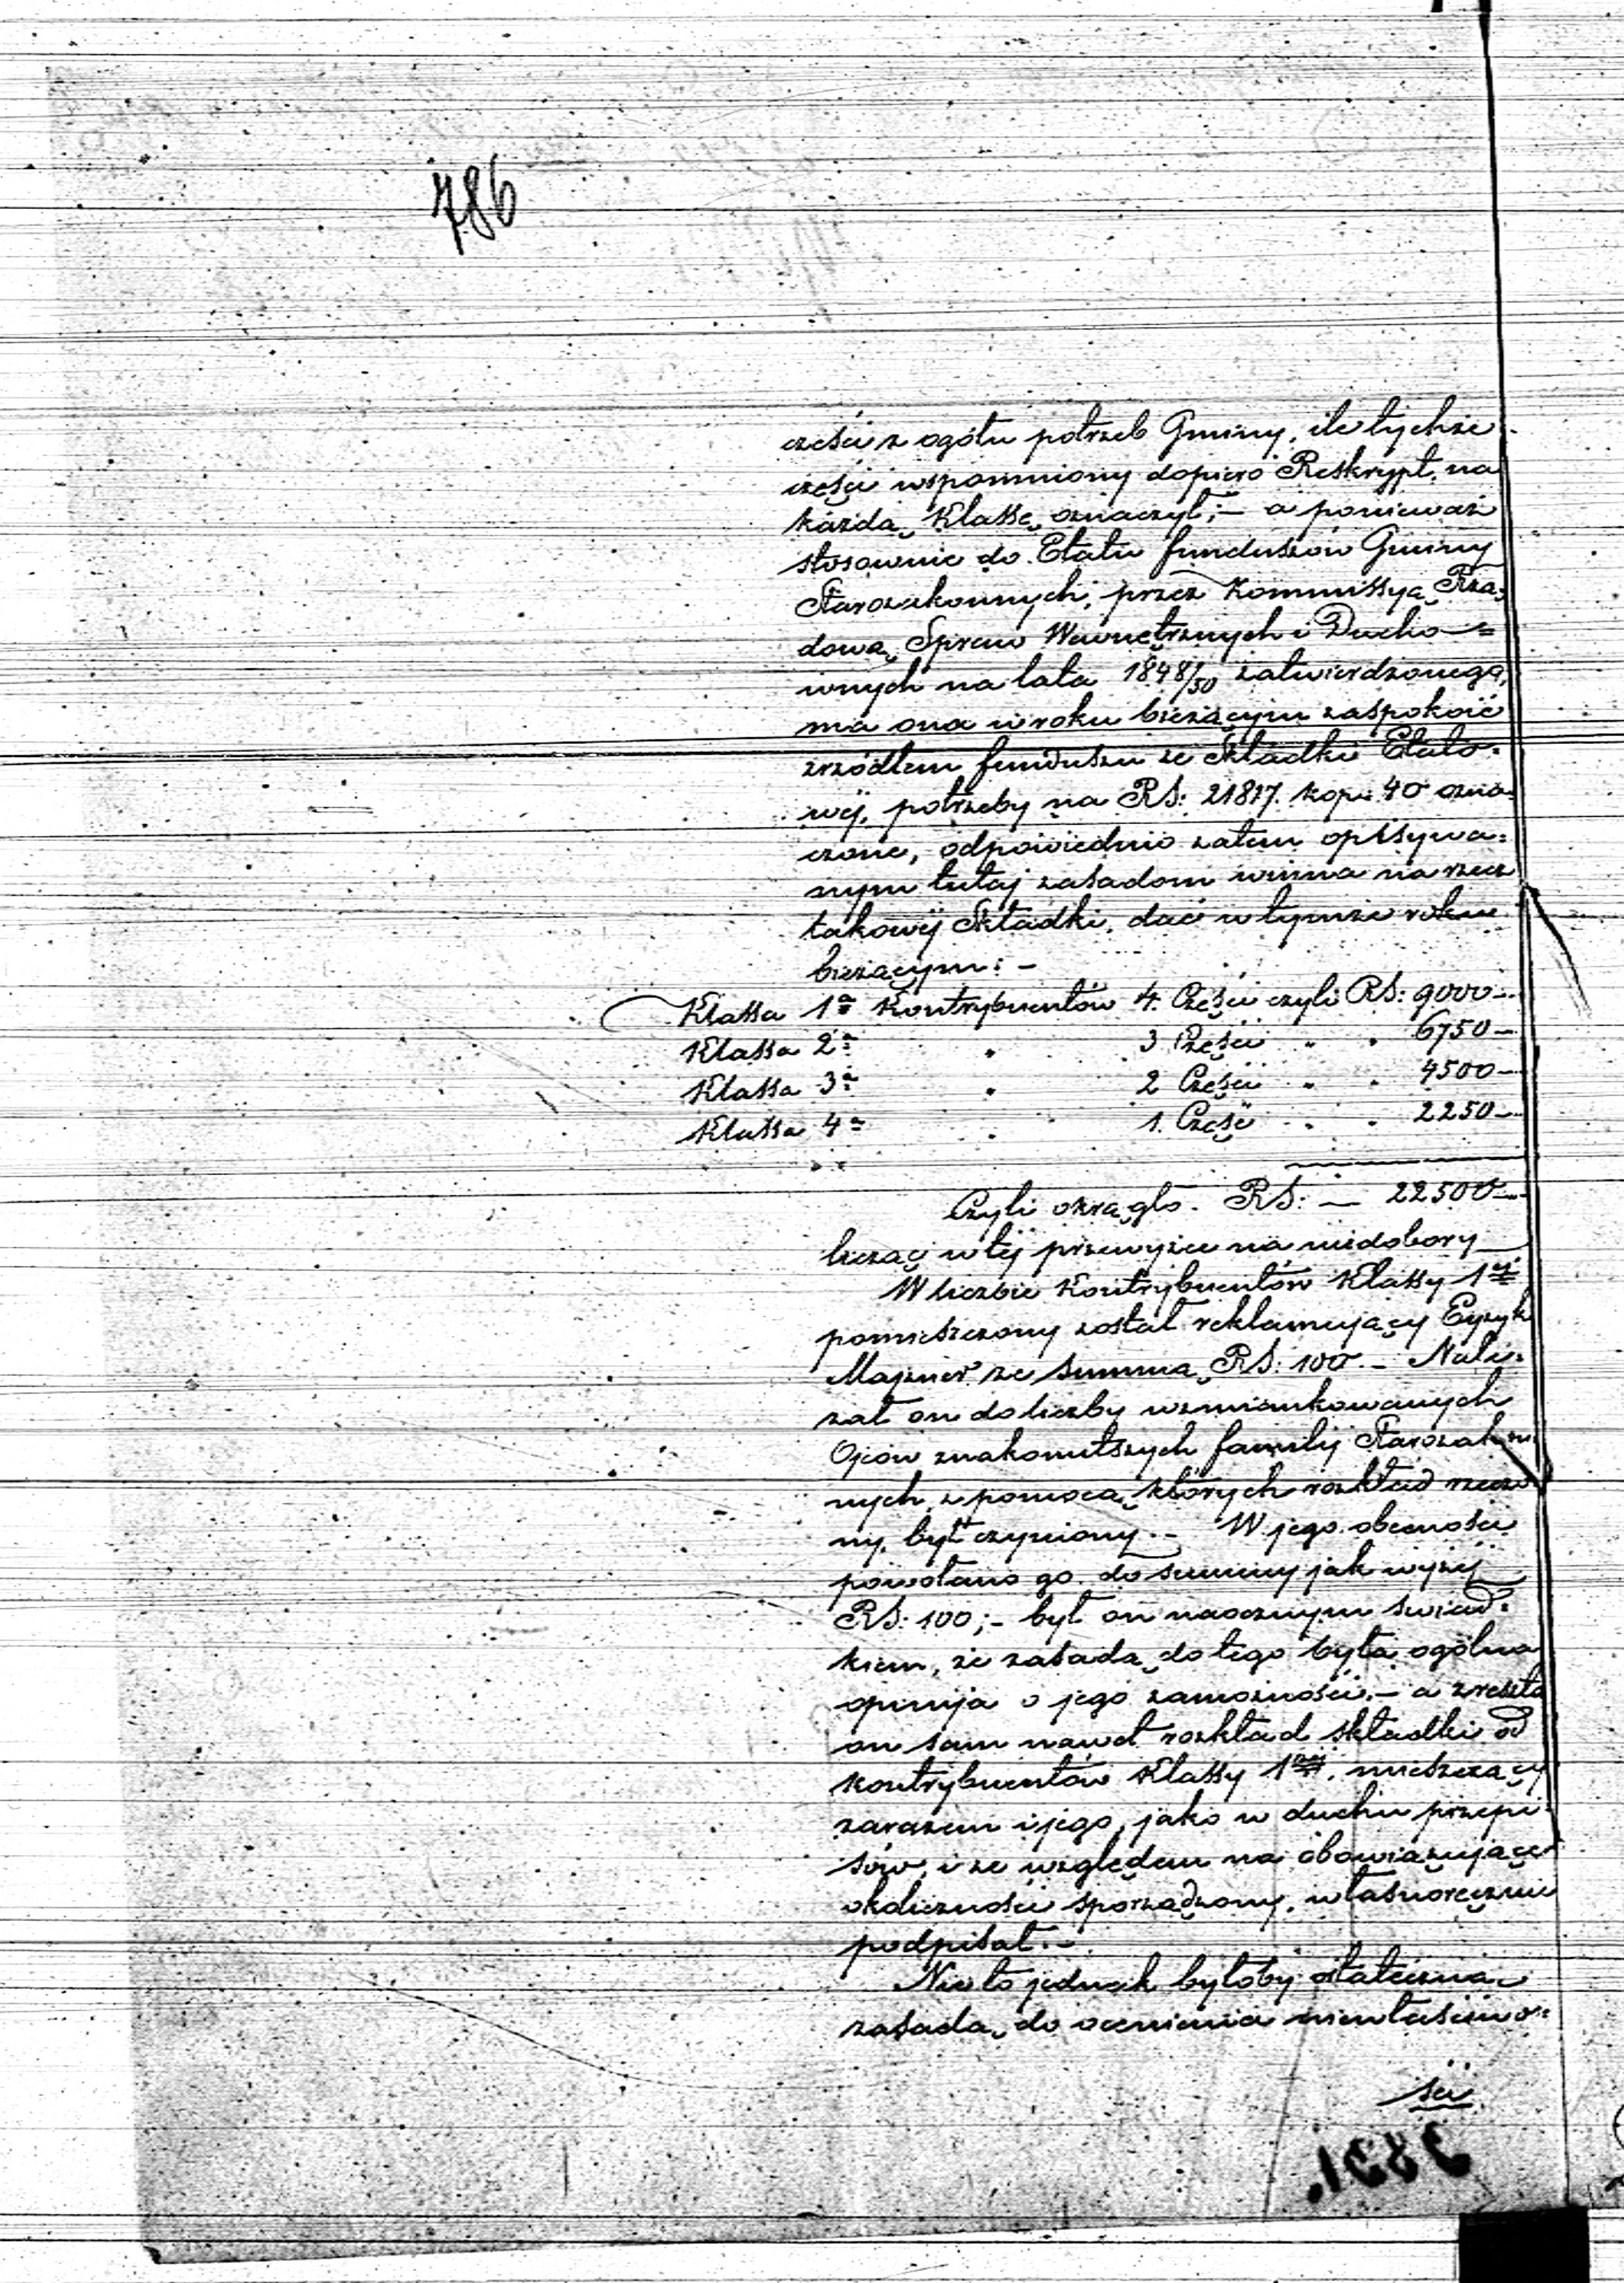 786
cześci z ogółu potrzeb Gminy, ile tychże
cześci wspomniony dopiero Reskrypt, na
każdą Klassę oznaczył; – a ponieważ
stosownie do Etatu funduszów Gminy
Starozakonnych, przez Kommissyą Rzą-
dową Spraw Wewnętrznych i Ducho=
wnych na lata 1848/50 zatwierdzonego,
ma ona w roku bieżącym zaspokoić
zrzódłem funduszu ze Składki Etato-
wéj, potrzeby na RS: 21817. kop: 40 ozna-
czone, odpowiednio zatem opisywa=
nym tutaj zasadom winna na rzecz
takowéj Składki, dać w tymże roku
bieżącym: –
Klassa 1a Kontrybuentów 4. Części czyli RS: 9000 –
Klassa 2a " 3 Części " " 6750 –
Klassa 3a " 2 Części " " 4500 –
Klassa 4a " 1. Część " " 2250 –
Czyli okrągło. RS: – 22500 –
licząc w téj przewyżce na niedobory
W liczbie Kontrybuentów Klassy 1éj
pomieszczony został reklamujący Eyzyk
Majzner ze summą RS: 100. – Nale-
żał on do liczby wzmiankowanych
Ojców znakomitszych familij Starozakon-
nych, z pomocą których rozkład rzeczo-
ny, był czyniony. – W jego obecności
powołano go do summy jak wyżéj
RS: 100; – był on naocznym świad-
kiem, że zasadą do tego była ogólna
opinija o jego zamożności, – a zresztą
on sam nawet rozkład składki od
kontrybuentów Klassy 1éj, mieszczący
zarazem i jego, jako w duchu przepi-
sów, i ze względem na obowiązujące
okoliczności sporządzony, własnoręcznie
podpisał. –
Nie to jednak byłoby ostateczną
zasadą do ocenienia niewłaściwo=
ści